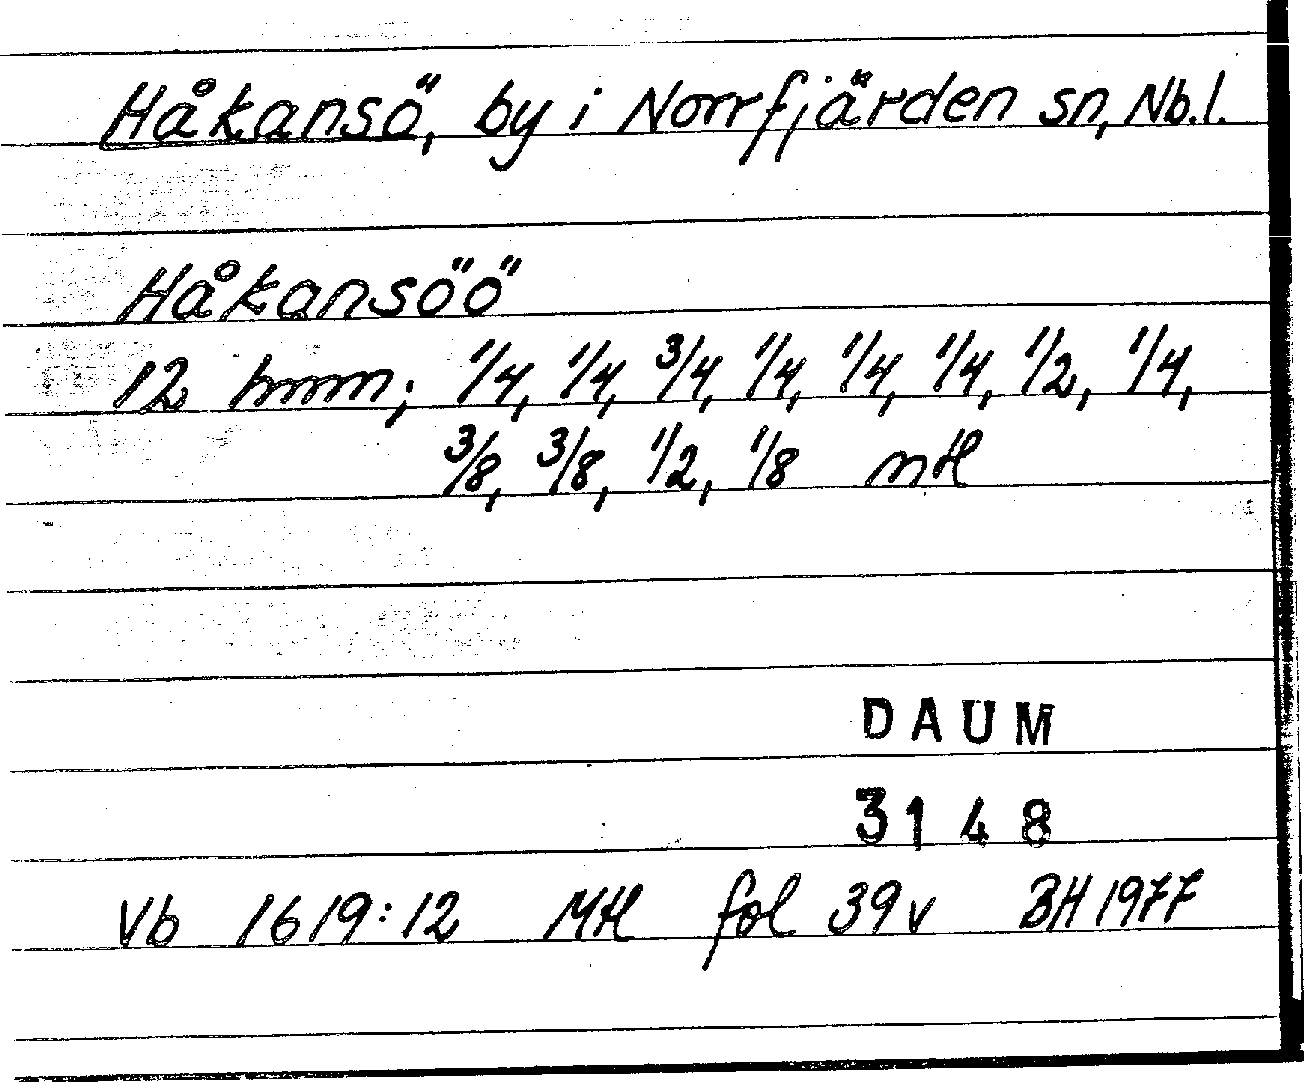 Håkansö, by i Norrfjärden sn, Nb.l.
Håkansöö
12 hmm; 1/4, 1/4, 3/4, 1/4, 1/4, 1/4, 1/2, 1/4,
3/8, 3/8, 1/2, 1/8 mtl
DAUM
3148
Vb 1619:12 Mtl fol 39v BH 1977